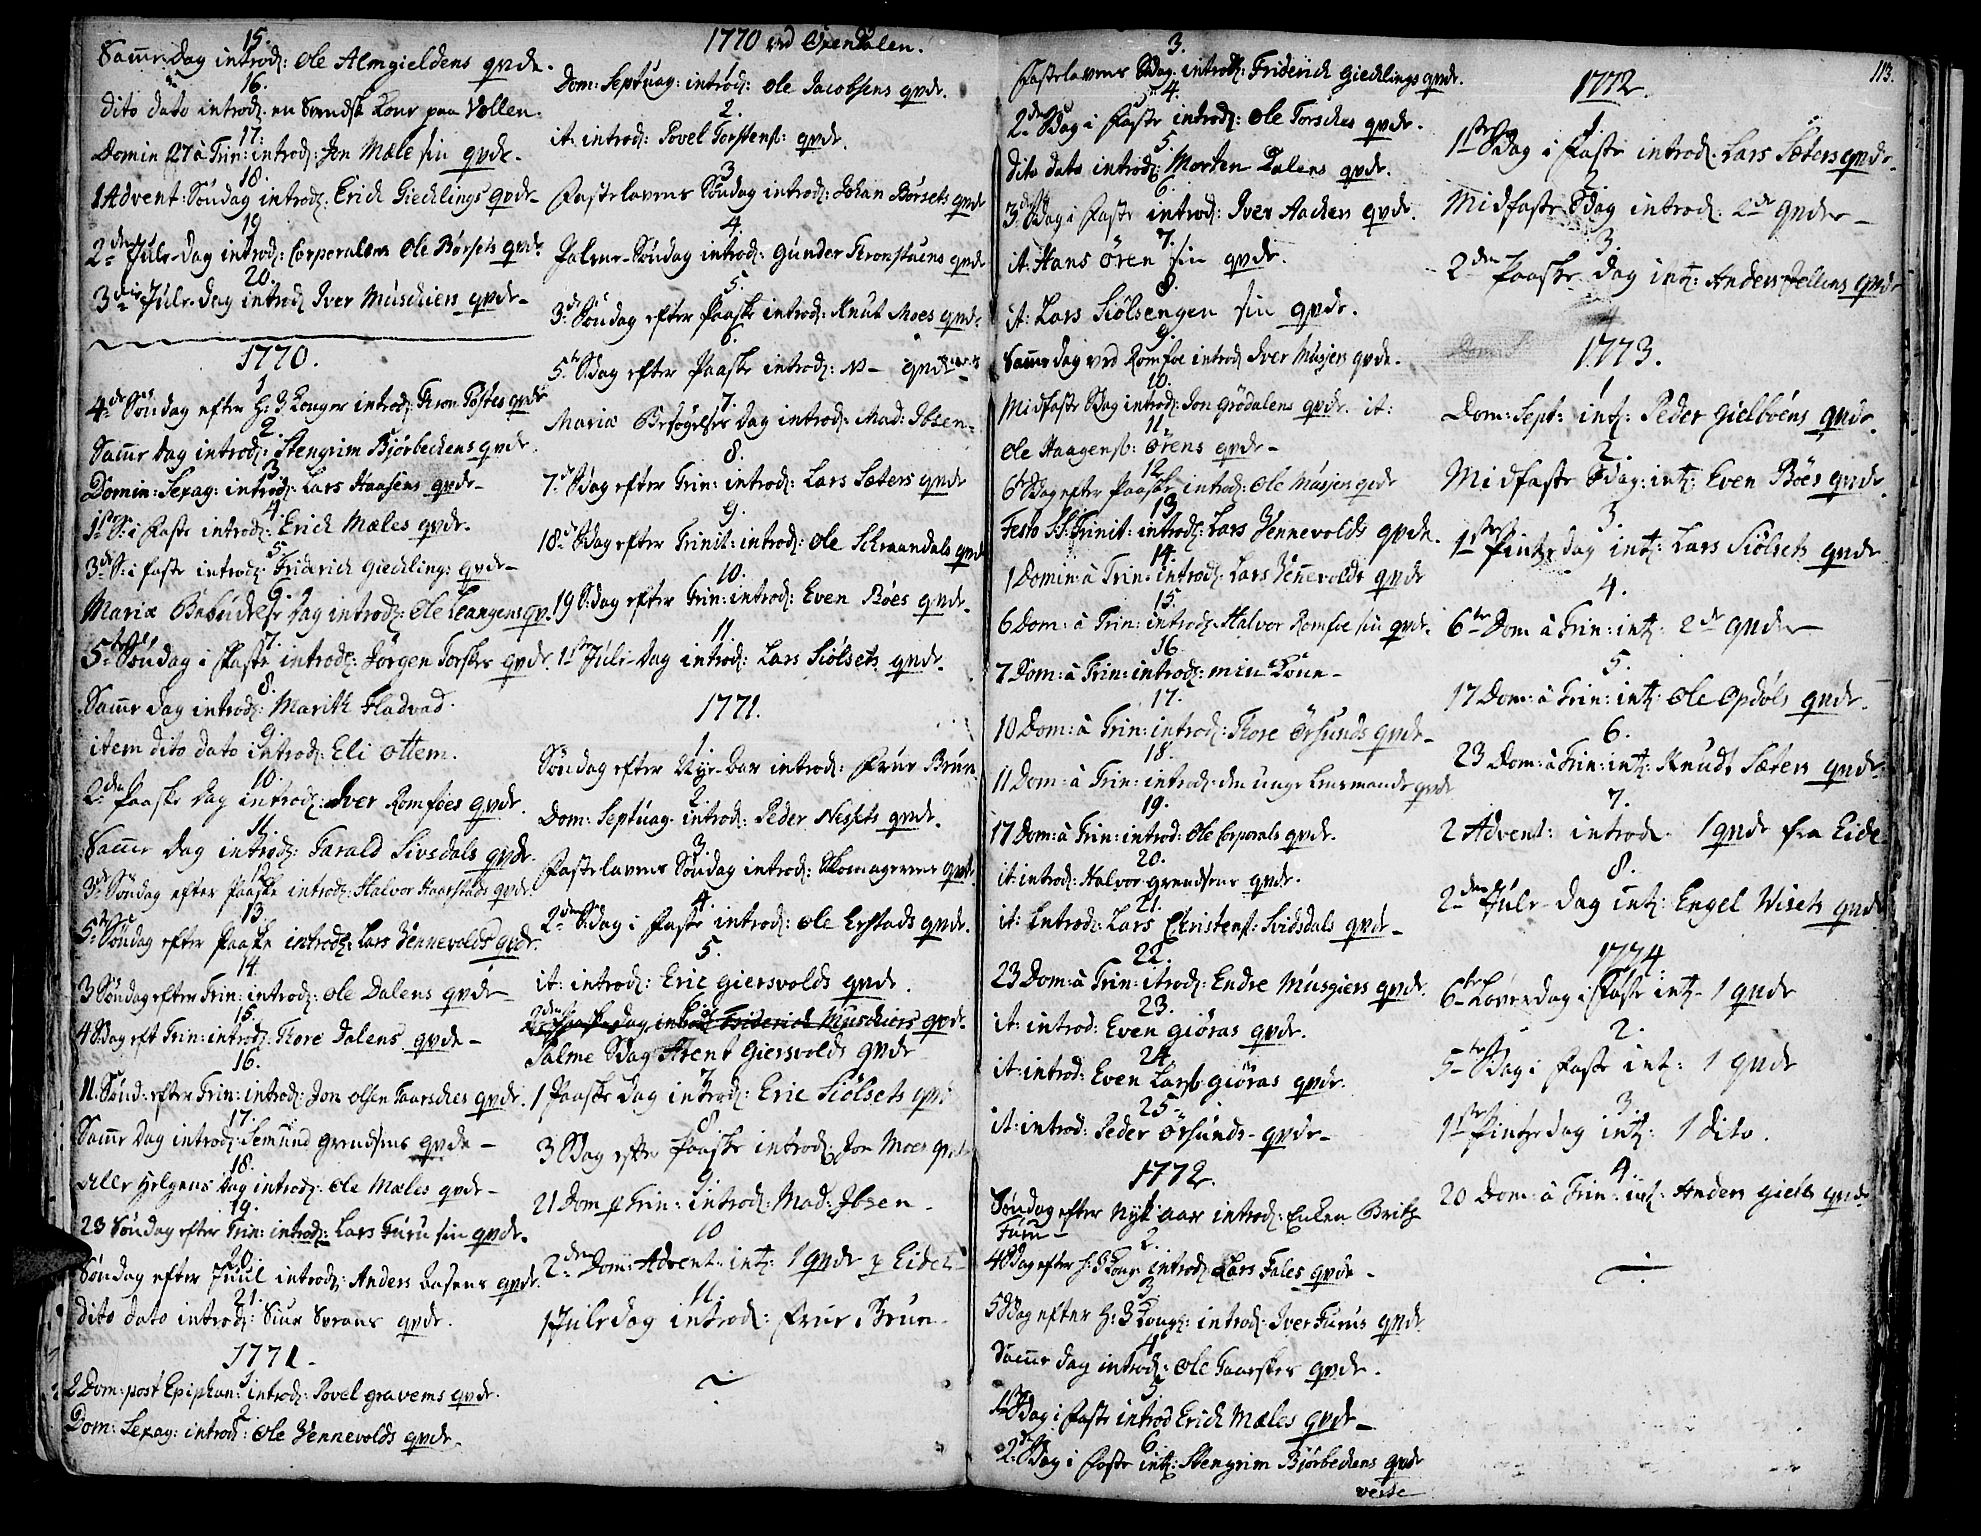 15.
Samme Dag introd: Ole Almgieldens qvde.
16.
dito dato introd: en Svensk Kone paa Vollen.
17.
Domin 27 à Trin: introd: Jon Mæle sin qvde.
18.
1 Advent: Søndag introd: Erick Giecklings qvde
19
2den Jule-dag introd: Corporalen Ole Børsets qvde.
20.
3die Jule-dag introd: Iver Muschiers qvde
1770.
1
4de Søndag efter H: 3 Konger introd: Tron Tostes qvde
2.
Samme Dag introd: Stengrim Biørbeckens qvde
3
Domin: Sexag: introd: Lars Haasens qvde
4.
1ste S: i Faste introd: Erick Mæles qvde.
5.
3de S: i Faste introd: Friderich Giecklings qvde
6.
Mariæ Bebudelse Dag introd: Ole Leangens qv.
7.
5te Søndag i Faste introd: Jørgen Torskes qvde
8.
Samme Dag introd: Marith Hadvad.
9.
item dito dato introd: Eli Ottem.
10.
2den Paaske Dag introd: Iver Romfoes qvde.
11.
Samme Dag introd: Tarald Sivsdals qvde.
12.
3de Søndag efter Paaske introd: Halvor Haarstads qvde.
13.
5te Søndag efter Paaske introd: Lars Vennevolds qvde.
14.
3 Søndag efter Trin: introd: Ole Dalens qvde
15.
4 Sdag eft Trin: introd: Tore Dalens qvde
16.
11. Sønd: efter Trin: introd: Jon Olsen Taarskes qvde.
17.
Samme Dag introd: Semund Grendsens qvde
18.
Alle Helgens Dag introd: Ole Mæles qvde
19.
23 Søndag efter Trin: introd: Lars Furu sin qvde.
20.
Søndag efter Juul introd: Anders Casens qvde.
21.
dito dato introd: Siur qvde.
1771.
1
2 Dom: post Epiphan: introd: Povel Gravems qvde.
2.
Dom: Sexag: introd: Ole Vennevolds qvde.
1770 ved Øxendalen.
1
Dom: Septuag: introd: Ole Jacobsens qvde.
2.
it: introd: Povel Torstens: qvde.
3
Fastelavens Søndag introd: Johan Børsets qvde
4.
Palme-Søndag introd: Gunder Tronstuens qvde
5.
3de Søndag efter Paaske introd: Knut Moes qvde.
6.
5te Sdag efter Paaske introd: N- qvde
7.
Mariæ Besøgelses Dag introd: Mad: Ibsen.
8.
7de Sdag efter Trin: introd: Lars Sæters qvde
9.
18de Sdag efter Trinit: introd: Ole qvde
10.
19 Sdag efter Trin: introd: Even Bøes qvde.
11.
1ste Jule-Dag introd: Lars Siølsets qvde.
1771.
1
Søndag efter Nye-Aar introd: Frue Brun
2.
Dom: Septuag introd: Peder Nesets qvde.
3.
Fastelavens Søndag introd: Skomagerens qvde
4.
2den Sdag i Faste introd: Ole Erstads qvde.
5.
it: introd: Eric Giersvolds qvde.
6.
2den Paaske Dag introd Friderich Muschiers qvde.
Palme Sdag Arent Giersvolds qvde
7.
1 Paaske Dag introd: Eric Siølsets qvd
8
3 Sdag efter Paaske introd: Jon Moes qvde
9.
21 Dom p Trin: introd: Mad: Ibsen.
10
2den Dom: Advent: int: 1 qvde p Eidet
11.
1 Juledag introd: Frue Brun
3.
Fastelavens Sdag introd: Friderich Giecklings qvde.
4.
2den Sdag i Faste introd: Ole Torskes qvde.
5.
dito dato introd: Morten Dalens qvde.
6.
3de Sdag i Faste introd: Iver Aackers qvde.
7.
it: Hans Ören sin qvde.
8.
it: Lars Siölsengen sin qvde.
9.
Samme dag ved Romfoe introd Iver Musjers qvde.
10.
Midfaste Sdag introd: Jon Grödalens qvde. it:
11.
Ole Haagens: Örens qvde
12.
6te Sdag efter Paaske introd: Ole Musjers qvde
13
Festo SS: Trinit: introd: Lars Vennevolds qvde.
14.
1 Domin: à Trin: introd: Lars Vennevolds qvde
15.
6 Dom: à Trin: introd: Halvor Romfoe sin qvde.
16
7 Dom: à Trin: introd: min Kone
17.
10 Dom: à Trin: introd: Tore Örsunds qvde
18.
11 Dom: à Trin: introd: den unge Lensmands qvde
19.
17 Dom: à Trin: introd: Ole Corporals qvde.
20.
it: introd: Halvor Grendsens qvde.
21.
it: introd: Lars Christens: Svidsdals qvde
22.
23 Dom: à Trin: itrod: Endre Musgiers qvde.
23.
it: introd: Even Giöras qvde.
24.
it: introd: Even Larss: Giöras qvde.
25.
it: introd: Peder Örsunds qvde
1772.
1
Søndag efter Nytt aar introd: Enken Brith
Furu
2.
4 Sdag efter h: 3 Kong: introd: Lars Fales qvde
3.
5 Sdag efter H: 3 Kong: introd: Iver Furus qvde
4
Samme dag introd: Ole Taarskes qvde.
5.
1ste Sdag i Faste introd Erich Mæles qvde
6.
2den Sdag i Faste int: Stengrim Biörbeckens qvde
verte
113.
1772.
1.
1ste Sdag i Faste introd: Lars Sæters qvde.
Midfaste Sdag introd: 2de qvder
3.
2den Paaske dag int: Anders qvde
1773.
1
Dom: Sept: int: Peder Gielbøens qvde.
2.
Midfaste Sdag: int: Even Böes qvde
3.
1ste Pintzedag int: Lars Siölsets qvde
4.
6te Dom à Trin: int: 2de qvder
5.
17 Dom: à Trin: int: Ole Opdöls qvde.
6.
23 Dom: à Trin: int: Knudt Sæters qvde.
7.
2 Advent: introd. 1 qvde fra Eide.
8.
2den Jule-dag int: Engel Visets qvde
1774.
1
6te Løverdag i Faste int- 1 qvde
2.
5te Sdag i Faste int: 1 qvde
3.
1ste Pintzedag int: 1 dito.
4.
20 Dom: à Trin: int: Anders Giels qvde